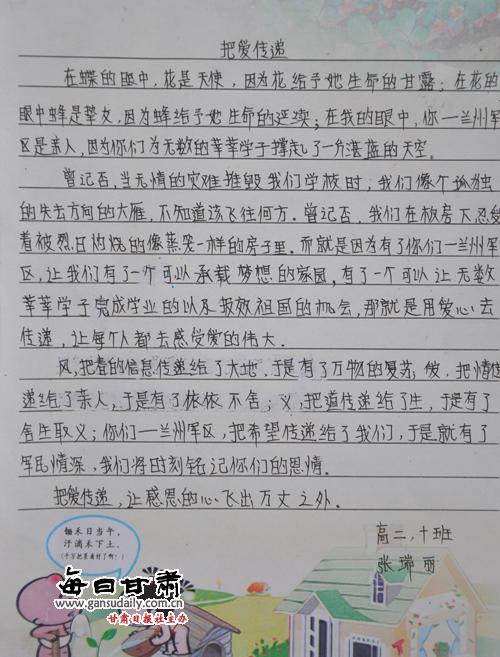 把爱传递
在蝶的眼中,花是天使,因为花给予她生命的甘露;在花的
眼中蜂是挚友,因为蜂给予她生命的延续;在我的眼中,你一兰州军
区是亲人,因为你们为无数的莘莘学子撑起了一方湛蓝的天空。
曾记否,当无情的灾难摧毁我们学校时,我们像个孤独
的失去方向的大雁,不知道该飞往何方。曾记否,我们在板房下忍受
着被烈日灼烧的像蒸笼一样的房子里。而就是因为有了你们一兰州军
区,让我们有了一个可以承载梦想的家园,有了一个可以让无数
莘莘学子完成学业的以及报效祖国的机会,那就是用爱心去
传递,让每个人都去感受爱的伟大。
风,把春的信息传递给了大地,于是有了万物的复苏;俊,把情传
递给了亲人,于是有了依依不舍;义,把道传递给了生,于是有了
舍生取义;你们一兰州军区,把希望传递给了我们,于是就有了
军民情深,我们将时刻铭记你们的恩情。
把爱传递,让感恩的心飞出万丈之外.
高二,十班
张瑞丽
锄禾日当午,
汗滴禾下土,
(千万把菜看好了啊!)
每日甘肃
www.gansudaily.com.cn
甘肃日报社主办